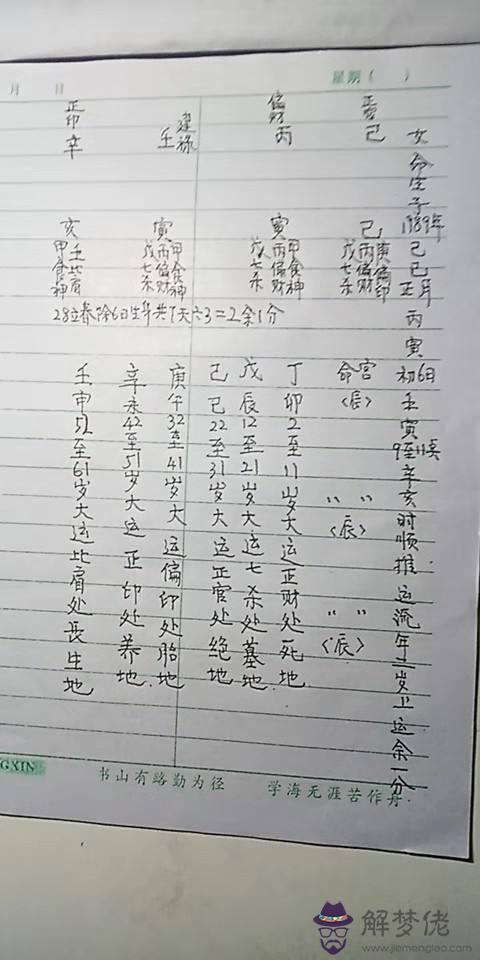 月 日 星期( )
女命生于1989年己巳正月丙寅初6日壬寅9至11点辛亥时顺推运流年二岁上运余一分
己 巳
丙 寅
偏财 丙 寅
建禄 壬 寅
正印 辛 亥
庚偏印 丙偏财 戊七杀
甲食神 丙偏财 戊七杀
甲食神 丙偏财 戊七杀
壬比肩 甲食神
28立春除6日生年共7天六3=2余1分
命宫〈辰〉 〃 〃〈辰〉 〃 〃〈辰〉
丁卯2至11岁大运正财处死地
戊辰12至21岁大运七杀处墓地.
己巳22至31岁大运正官处绝地
庚午32至41岁大运偏印处胎地
辛未42至51岁大运正印处养地.
壬申52至61岁大运比肩处长生地
GXIN 书山有路勤为径 学海无涯苦作舟
解梦佬
www.jiemenglao.com